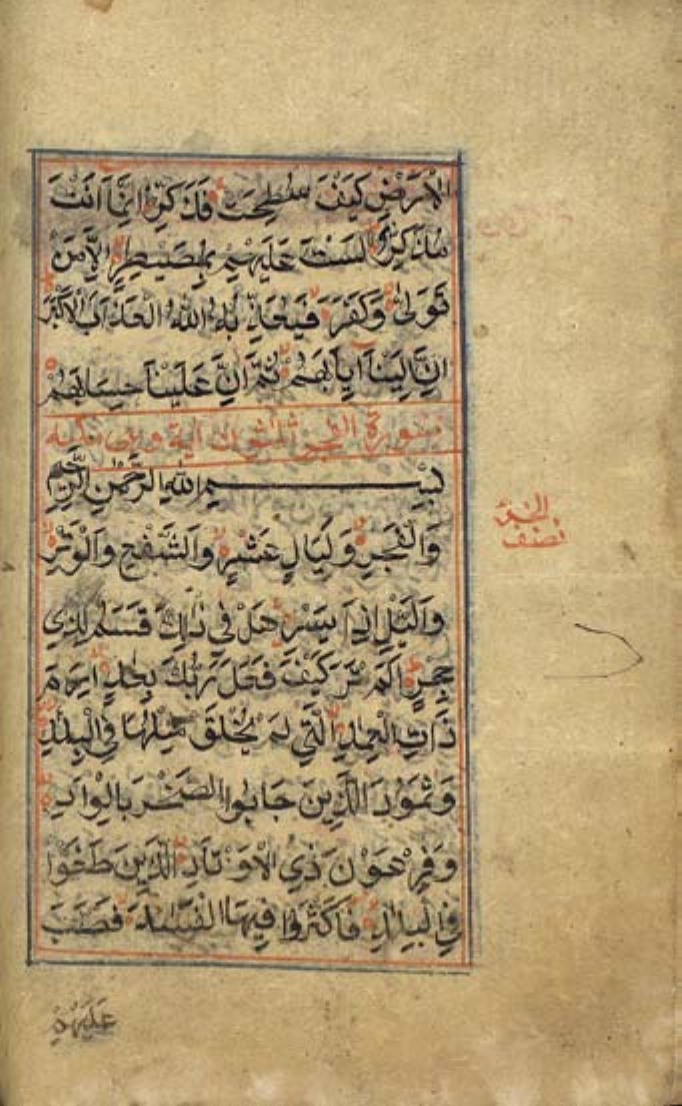 الْاَرْضِ كَيْفَ سُطِحَتْ فَذَكِّرْ اِنَّمَا اَنْتَ
مُذَكِّرٌ لَسْتَ عَلَيْهِمْ بِمُصَيْطِرٍ اِلَّا مَنْ
تَوَلّٰى وَكَفَرَ فَيُعَذِّبُهُ اللّٰهُ الْعَذَابَ الْاَكْبَرَ
اِنَّ اِلَيْنَا اِيَابَهُمْ ثُمَّ اِنَّ عَلَيْنَا حِسَابَهُمْ
سورة الفجر ثلثون آية وهي مكية
بِسْمِ اللّٰهِ الرَّحْمٰنِ الرَّحِيمِ
وَالْفَجْرِ وَلَيَالٍ عَشْرٍ وَالشَّفْعِ وَالْوَتْرِ
وَالَّيْلِ اِذَا يَسْرِ هَلْ فِي ذٰلِكَ قَسَمٌ لِذِي
حِجْرٍ اَلَمْ تَرَ كَيْفَ فَعَلَ رَبُّكَ بِعَادٍ اِرَمَ
ذَاتِ الْعِمَادِ الَّتِي لَمْ يُخْلَقْ مِثْلُهَا فِي الْبِلَادِ
وَثَمُودَ الَّذِينَ جَابُوا الصَّخْرَ بِالْوَادِ
وَفِرْعَوْنَ ذِي الْاَوْتَادِ الَّذِينَ طَغَوْا
فِي الْبِلَادِ فَاَكْثَرُوا فِيهَا الْفَسَادَ فَصَبَّ
نصف
عَلَيْهِمْ